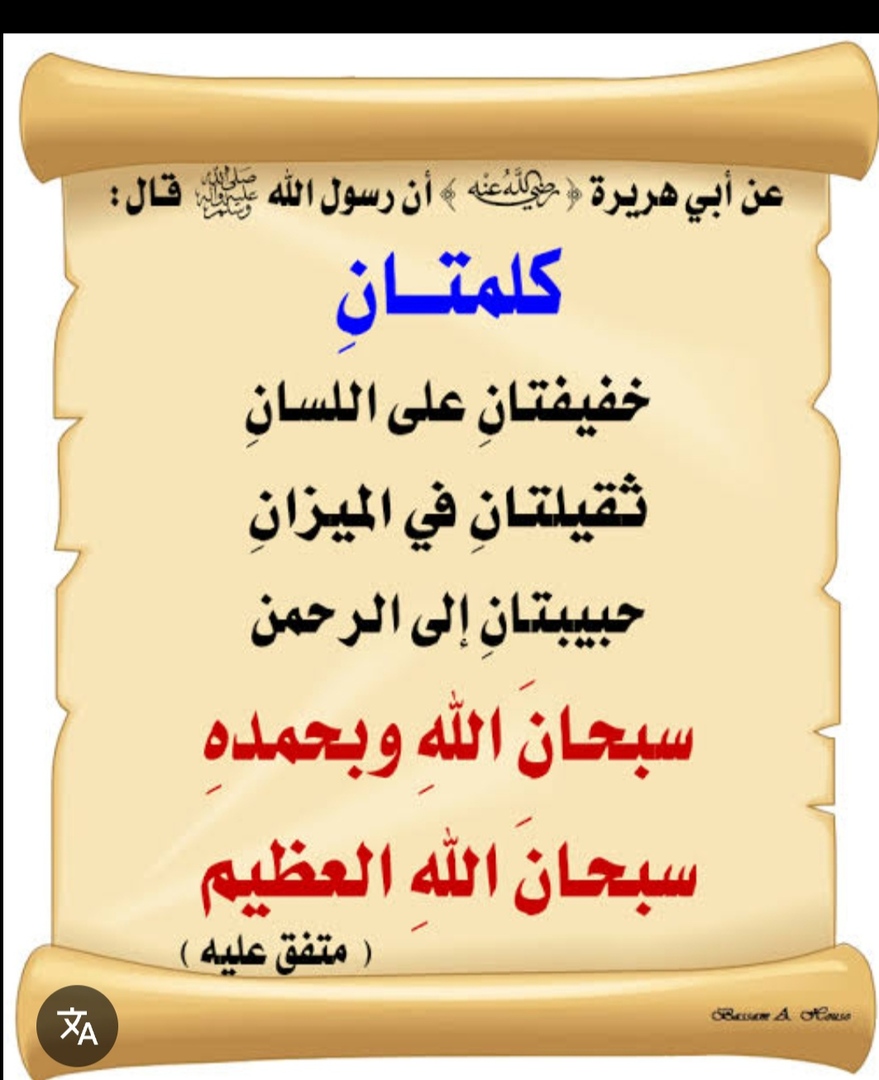 عن أبي هريرة ﴿ رضي الله عنه ﴾ أن رسول الله ﷺ قال :
كلمتــانِ
خفيفتانِ على اللسانِ
ثقيلتانِ في الميزانِ
حبيبتانِ إلى الرحمن
سبحانَ اللهِ وبحمدهِ
سبحانَ اللهِ العظيم
( متفق عليه )
Bassam A. Houso